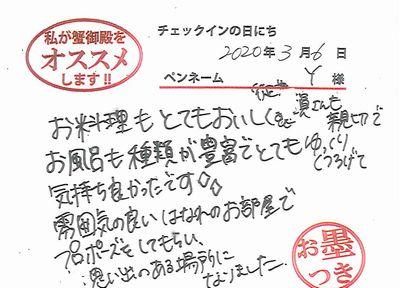 私が蟹御殿を
オススメ
します!!
チェックインの日にち
2020年3月6日
ペンネーム Y 様
お料理もとてもおいしく
従業員さんも親切で
お風呂も種類が豊富でとてもゆっくりくつろげて
気持ち良かったです◇◇
雰囲気の良いはなれのお部屋で
プロポーズをしてもらい、
思い出のある場所に
なりました
お墨
つき